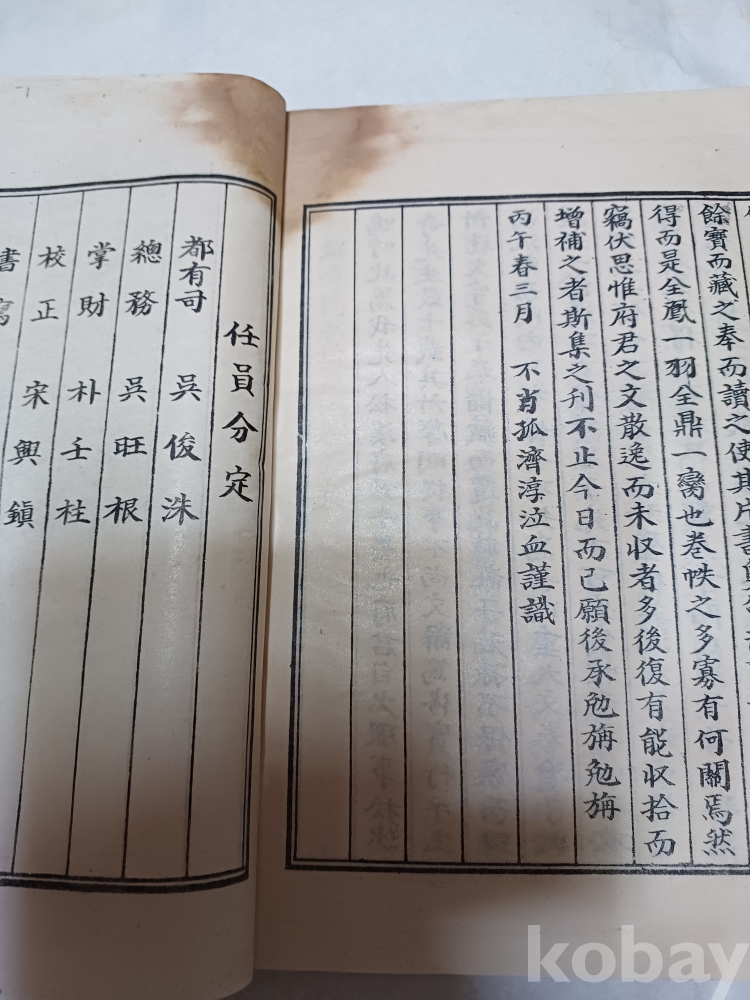 餘寶而藏之奉而讀之使其片書
得而是全鳳一羽全鼎一臠也卷帙之多寡有何關焉然
竊伏思惟府君之文散逸而未収者多後復有能収拾而
增補之者斯集之刊不止今日而已願後承勉旃勉旃
丙午春三月 不肖孤濟淳泣血謹識
任員分定
都有司 吳俊洙
總務 吳旺根
掌財 朴壬柱
校正 宋興鎭
書寫
kobay